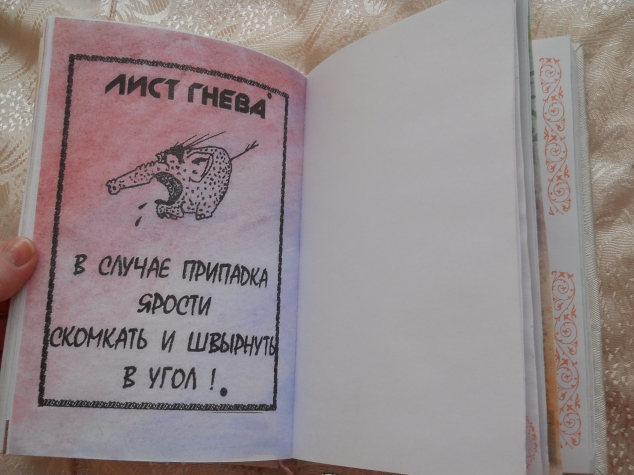 ЛИСТ ГНЕВА
В СЛУЧАЕ ПРИПАДКА
ЯРОСТИ
СКОМКАТЬ И ШВЫРНУТЬ
В УГОЛ!.